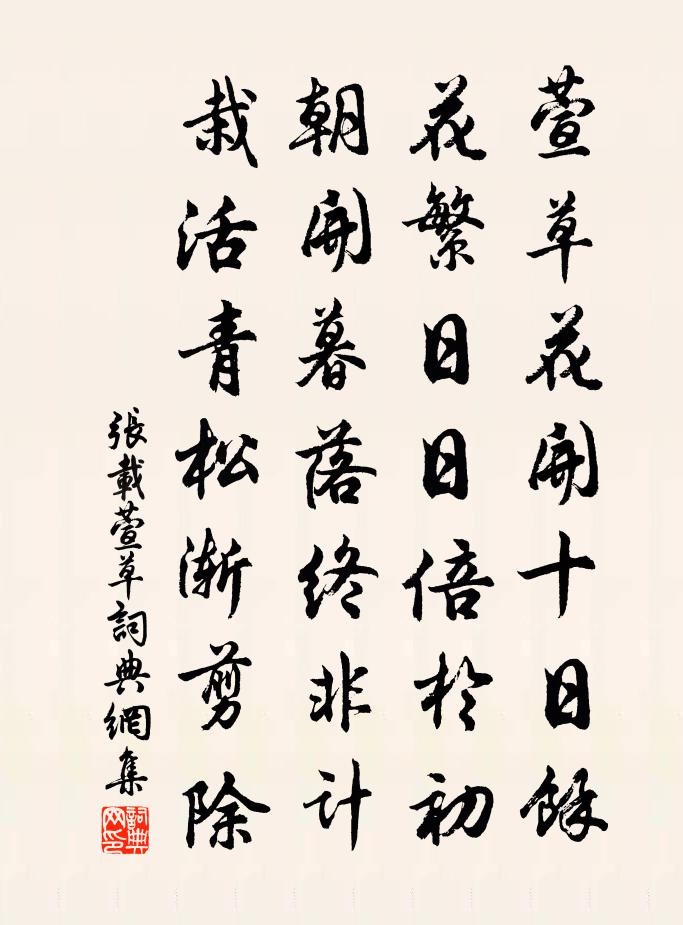 萱草花開十日餘
花繁日日倍於初
朝開暮落終非計
栽活青松漸剪除
張載萱草詞典網集
詞典网印